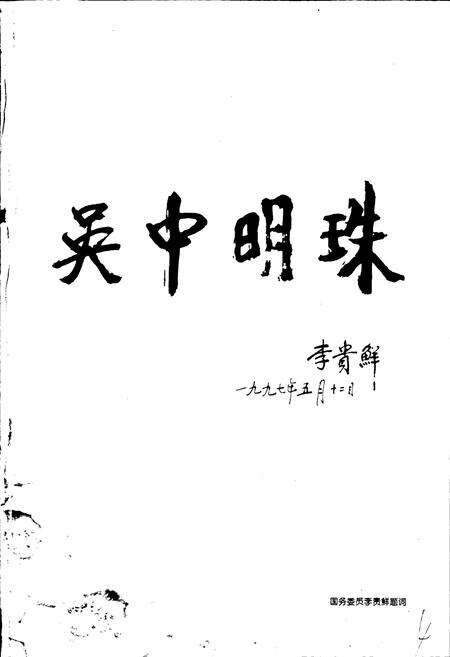 吳中明珠
李貴鮮
一九九七年五月十二日
国务委员李贵鲜题词